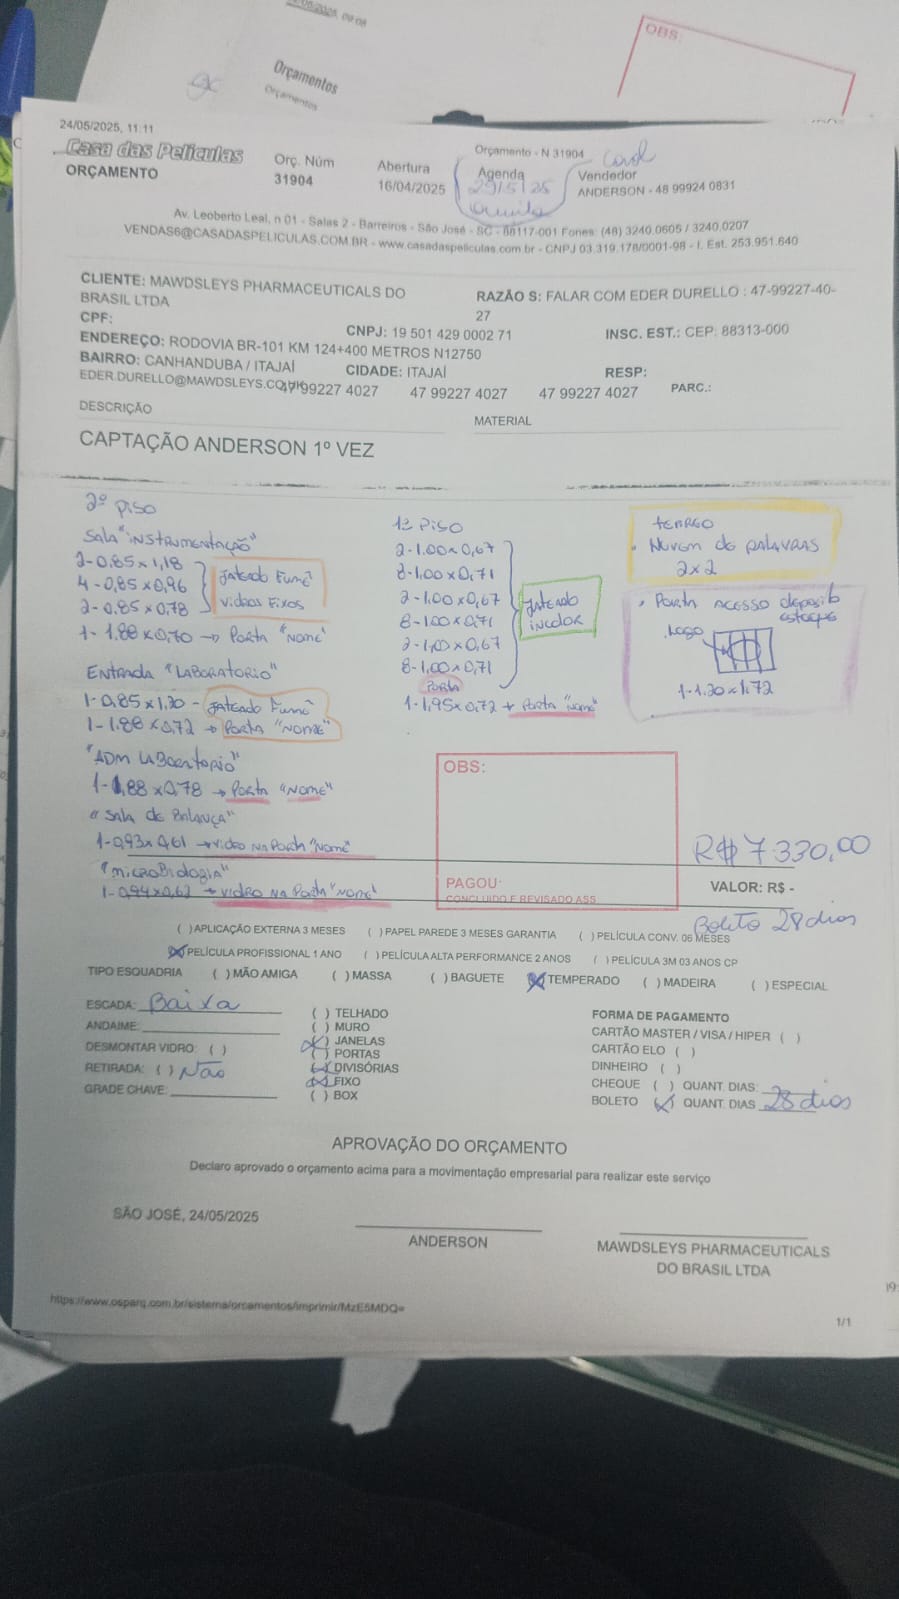 06/2025, 09:08
Orçamentos
Orçamentos
OBS:
24/05/2025, 11:11
Casa das Películas
ORÇAMENTO
Orç. Núm
31904
Abertura
16/04/2025
Orçamento - N 31904
Agenda
29/5/25
Vendedor
ANDERSON - 48 99924 0831
Av. Leoberto Leal, n 01 - Salas 2 - Barreiros - São José - SC - 88117-001 Fones: (48) 3240.0605 / 3240.0207
VENDAS6@CASADASPELICULAS.COM.BR - www.casadaspeliculas.com.br - CNPJ 03.319.178/0001-98 - I. Est. 253.951.640
CLIENTE: MAWDSLEYS PHARMACEUTICALS DO
BRASIL LTDA
RAZÃO S: FALAR COM EDER DURELLO : 47-99227-40-
27
CPF:
CNPJ: 19 501 429 0002 71
INSC. EST.: CEP: 88313-000
ENDEREÇO: RODOVIA BR-101 KM 124+400 METROS N12750
BAIRRO: CANHANDUBA / ITAJAÍ
CIDADE: ITAJAÍ
RESP:
EDER.DURELLO@MAWDSLEYS.CO.UK
47 99227 4027 47 99227 4027 47 99227 4027
PARC.:
DESCRIÇÃO
MATERIAL
CAPTAÇÃO ANDERSON 1º VEZ
2º PISO
SALA "INSTRUMENTAÇÃO"
2-0,85x1,18
4-0,85x0,96
2-0,85x0,78
JATEADO FUMÊ
VIDROS FIXOS
1-1.88x0,70 → PORTA "NOME"
ENTRADA "LABORATORIO"
1-0,85x1,20 - JATEADO FUMÊ
1-1.88x0,72 → PORTA "NOME"
"ADM LABORATORIO"
1-1,88x0,78 → PORTA "NOME"
"SALA DE BALANÇA"
1-0,93x0,61 → VIDRO NA PORTA "NOME"
"MICROBIOLOGIA"
1-0,94x0,62 → VIDRO NA PORTA "NOME"
1º PISO
2-1.00x0,67
8-1,00x0,71
2-1,00x0,67
8-1,00x0,71
2-1,00x0,67
8-1,00x0,71
JATEADO
INCOLOR
PORTA
1-1,95x0,72 → PORTA "NOME"
TERREO
• NUVEM DE PALAVRAS
2x2
• PORTA ACESSO deposito
estoque
LOGO
1-1.20x1.72
OBS:
PAGOU:
CONCLUIDO E REVISADO ASS
R$ 7.330,00
VALOR: R$ -
Boleto 28 dias
( ) APLICAÇÃO EXTERNA 3 MESES ( ) PAPEL PAREDE 3 MESES GARANTIA ( ) PELÍCULA CONV. 06 MESES
(X) PELÍCULA PROFISSIONAL 1 ANO ( ) PELÍCULA ALTA PERFORMANCE 2 ANOS ( ) PELÍCULA 3M 03 ANOS CP
TIPO ESQUADRIA ( ) MÃO AMIGA ( ) MASSA ( ) BAGUETE (X) TEMPERADO ( ) MADEIRA ( ) ESPECIAL
ESCADA: Baixa
ANDAIME:
DESMONTAR VIDRO: ( )
RETIRADA: ( ) Não
GRADE CHAVE:
( ) TELHADO
( ) MURO
(X) JANELAS
( ) PORTAS
(X) DIVISÓRIAS
(X) FIXO
( ) BOX
FORMA DE PAGAMENTO
CARTÃO MASTER / VISA / HIPER ( )
CARTÃO ELO ( )
DINHEIRO ( )
CHEQUE ( ) QUANT. DIAS:
BOLETO (X) QUANT. DIAS 28 dias
APROVAÇÃO DO ORÇAMENTO
Declaro aprovado o orçamento acima para a movimentação empresarial para realizar este serviço
SÃO JOSÉ, 24/05/2025
ANDERSON
MAWDSLEYS PHARMACEUTICALS
DO BRASIL LTDA
https://www.osparq.com.br/sistema/orcamentos/imprimir/MzE5MDQ=
1/1